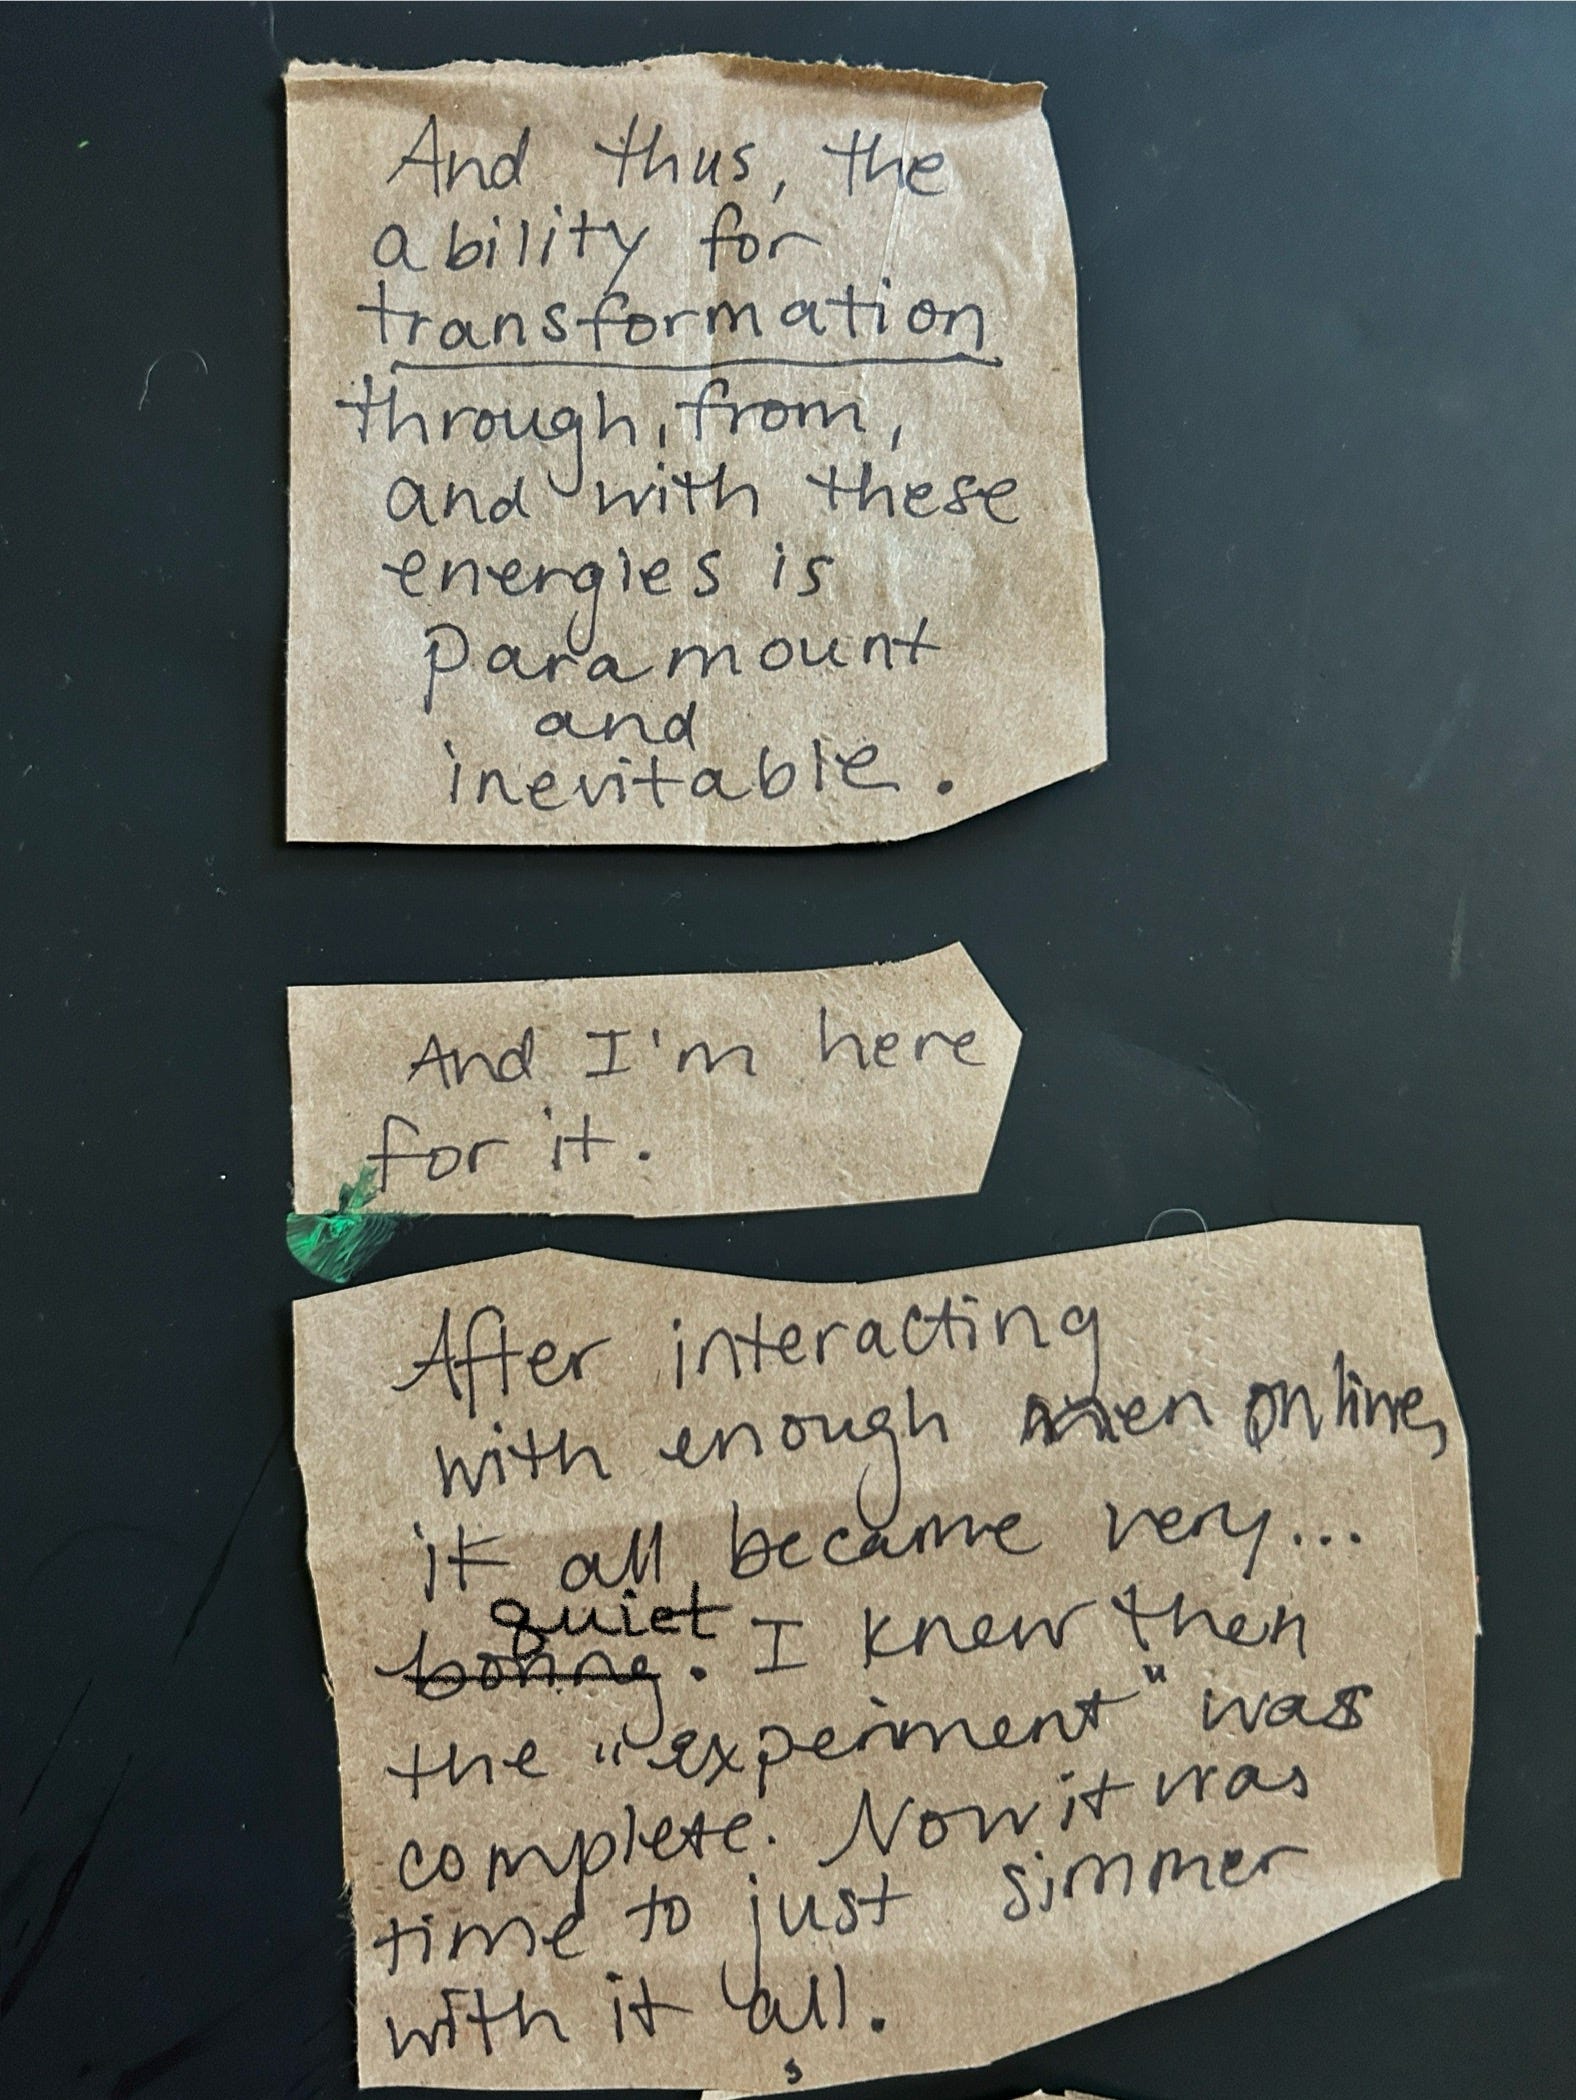 And thus, the
ability for
transformation
through, from,
and with these
energies is
paramount
and
inevitable.
And I'm here
for it.
After interacting
with enough men online,
it all became very...
quiet
boring. I knew then
the "experiment" was
complete. Now it was
time to just simmer
with it all.
s